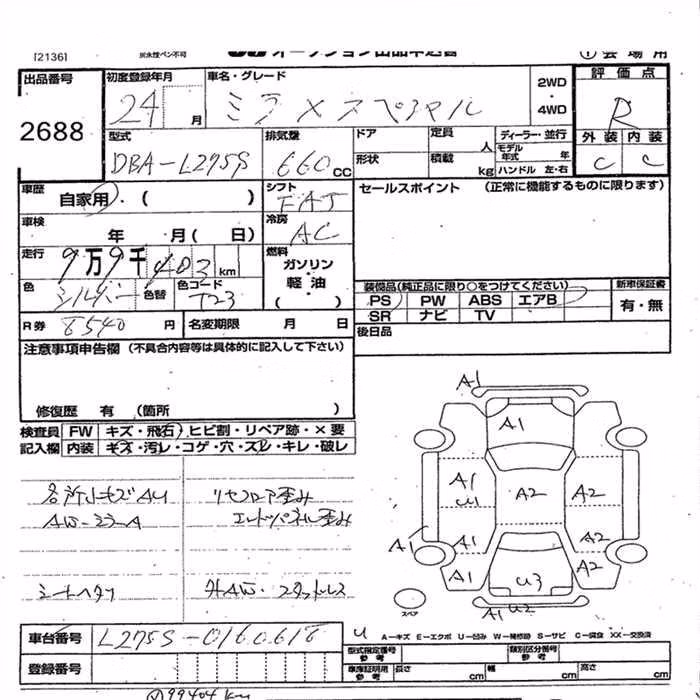 [2136]
出品番号 初度登録年月 車名・グレード 2WD 評価点
2688 24 月 ミラ メモスペシャル ・4WD R
外装 内装
型式 排気量 ドア 定員 人 ディーラー・並行
DBA-L275S 660 CC 形状 積載 kg モデル年式 年 ハンドル 左・右 C C
車歴 自家用・( ) シフト FAT セールスポイント (正常に機能するものに限ります)
車検 年 月( 日) 冷房 AC
走行 9万9千403 km 燃料 ガソリン・軽油( )
色 シルバー 色替 色コード T23
装備品(純正品に限り○をつけてください) 新車保証書
PS PW ABS エアB 有・無
SR ナビ TV
R券 8540 円 名変期限 月 日 後日品
注意事項申告欄(不具合内容等は具体的に記入して下さい)
修復歴 有 (箇所 )
検査員 FW キズ・飛石・ヒビ割・リペア跡・×要
記入欄 内装 キズ・汚レ・コゲ・穴・スレ・キレ・破レ
各所小キズAU リヤフロア歪み
AW-コラーA エンドパネル歪み
シートヘタリ 外AW・スタッドレス
A1
A1
A1 U1 A2 A2
A1 A1 A2
A1 U3 A2
A1 U2
スペア
A-キズ E-エクボ U-凹み W-補修跡 S-サビ C-腐食 XX-交換済
車台番号 L275S-0160618
型式指定番号 参考 類別区分番号 参考
登録番号 車庫証明用 参考 長さ cm 幅 cm 高さ cm
99404 km